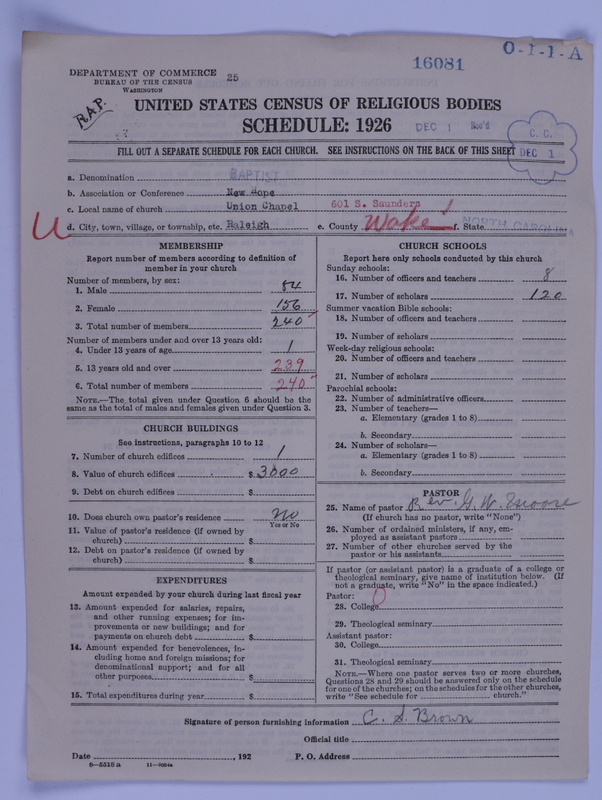 16081
O-1-1-A
DEPARTMENT OF COMMERCE
BUREAU OF THE CENSUS
WASHINGTON
25
RAP.
UNITED STATES CENSUS OF RELIGIOUS BODIES
SCHEDULE: 1926
DEC 1 Rec'd
C. C.
DEC 1
FILL OUT A SEPARATE SCHEDULE FOR EACH CHURCH. SEE INSTRUCTIONS ON THE BACK OF THIS SHEET
a. Denomination BAPTIST
b. Association or Conference New Hope
c. Local name of church Union Chapel 601 S. Saunders
U
d. City, town, village, or township, etc. Raleigh e. County Wake f. State NORTH CAROLINA
MEMBERSHIP
Report number of members according to definition of
member in your church
Number of members, by sex:
1. Male 84
2. Female 156
3. Total number of members 240
Number of members under and over 13 years old:
4. Under 13 years of age 1
5. 13 years old and over 239
6. Total number of members 240
NOTE.—The total given under Question 6 should be the
same as the total of males and females given under Question 3.
CHURCH BUILDINGS
See instructions, paragraphs 10 to 12
7. Number of church edifices 1
8. Value of church edifices $ 3000
9. Debt on church edifices $
10. Does church own pastor's residence No
Yes or No
11. Value of pastor's residence (if owned by
church) $
12. Debt on pastor's residence (if owned by
church) $
EXPENDITURES
Amount expended by your church during last fiscal year
13. Amount expended for salaries, repairs,
and other running expenses; for im-
provements or new buildings; and for
payments on church debt $
14. Amount expended for benevolences, in-
cluding home and foreign missions; for
denominational support; and for all
other purposes $
15. Total expenditures during year $
CHURCH SCHOOLS
Report here only schools conducted by this church
Sunday schools:
16. Number of officers and teachers 8
17. Number of scholars 120
Summer vacation Bible schools:
18. Number of officers and teachers
19. Number of scholars
Week-day religious schools:
20. Number of officers and teachers
21. Number of scholars
Parochial schools:
22. Number of administrative officers
23. Number of teachers—
a. Elementary (grades 1 to 8)
b. Secondary
24. Number of scholars—
a. Elementary (grades 1 to 8)
b. Secondary
PASTOR
25. Name of pastor Rev. G. W. Moore
(If church has no pastor, write "None")
26. Number of ordained ministers, if any, em-
ployed as assistant pastors
27. Number of other churches served by the
pastor or his assistants
If pastor (or assistant pastor) is a graduate of a college or
theological seminary, give name of institution below. (If
not a graduate, write "No" in the space indicated.)
Pastor: 0
28. College
29. Theological seminary
Assistant pastor:
30. College
31. Theological seminary
NOTE.—Where one pastor serves two or more churches,
Questions 28 and 29 should be answered only on the schedule
for one of the churches; on the schedules for the other churches,
write "See schedule for church."
Signature of person furnishing information C. S. Brown
Official title
Date , 192 P. O. Address
8—5518a 11—9084a